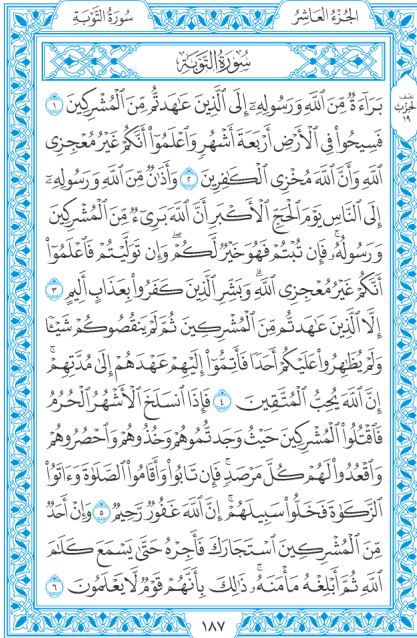 سُورَةُ التَّوْبَةِ
الجُزْءُ العَاشِرُ
نصف
الحزب
١٩
سُورَةُ التَّوْبَةِ
بَرَآءَةٌ مِّنَ ٱللَّهِ وَرَسُولِهِۦٓ إِلَى ٱلَّذِينَ عَٰهَدتُّم مِّنَ ٱلْمُشْرِكِينَ ١
فَسِيحُوا۟ فِى ٱلْأَرْضِ أَرْبَعَةَ أَشْهُرٍ وَٱعْلَمُوٓا۟ أَنَّكُمْ غَيْرُ مُعْجِزِى
ٱللَّهِ وَأَنَّ ٱللَّهَ مُخْزِى ٱلْكَٰفِرِينَ ٢ وَأَذَٰنٌ مِّنَ ٱللَّهِ وَرَسُولِهِۦٓ
إِلَى ٱلنَّاسِ يَوْمَ ٱلْحَجِّ ٱلْأَكْبَرِ أَنَّ ٱللَّهَ بَرِىٓءٌ مِّنَ ٱلْمُشْرِكِينَ
وَرَسُولُهُۥ ۚ فَإِن تُبْتُمْ فَهُوَ خَيْرٌ لَّكُمْ ۖ وَإِن تَوَلَّيْتُمْ فَٱعْلَمُوٓا۟
أَنَّكُمْ غَيْرُ مُعْجِزِى ٱللَّهِ ۗ وَبَشِّرِ ٱلَّذِينَ كَفَرُوا۟ بِعَذَابٍ أَلِيمٍ ٣
إِلَّا ٱلَّذِينَ عَٰهَدتُّم مِّنَ ٱلْمُشْرِكِينَ ثُمَّ لَمْ يَنقُصُوكُمْ شَيْـًٔا
وَلَمْ يُظَٰهِرُوا۟ عَلَيْكُمْ أَحَدًا فَأَتِمُّوٓا۟ إِلَيْهِمْ عَهْدَهُمْ إِلَىٰ مُدَّتِهِمْ ۚ
إِنَّ ٱللَّهَ يُحِبُّ ٱلْمُتَّقِينَ ٤ فَإِذَا ٱنسَلَخَ ٱلْأَشْهُرُ ٱلْحُرُمُ
فَٱقْتُلُوا۟ ٱلْمُشْرِكِينَ حَيْثُ وَجَدتُّمُوهُمْ وَخُذُوهُمْ وَٱحْصُرُوهُمْ
وَٱقْعُدُوا۟ لَهُمْ كُلَّ مَرْصَدٍ ۚ فَإِن تَابُوا۟ وَأَقَامُوا۟ ٱلصَّلَوٰةَ وَءَاتَوُا۟
ٱلزَّكَوٰةَ فَخَلُّوا۟ سَبِيلَهُمْ ۚ إِنَّ ٱللَّهَ غَفُورٌ رَّحِيمٌ ٥ وَإِنْ أَحَدٌ
مِّنَ ٱلْمُشْرِكِينَ ٱسْتَجَارَكَ فَأَجِرْهُ حَتَّىٰ يَسْمَعَ كَلَٰمَ
ٱللَّهِ ثُمَّ أَبْلِغْهُ مَأْمَنَهُۥ ۚ ذَٰلِكَ بِأَنَّهُمْ قَوْمٌ لَّا يَعْلَمُونَ ٦
١٨٧